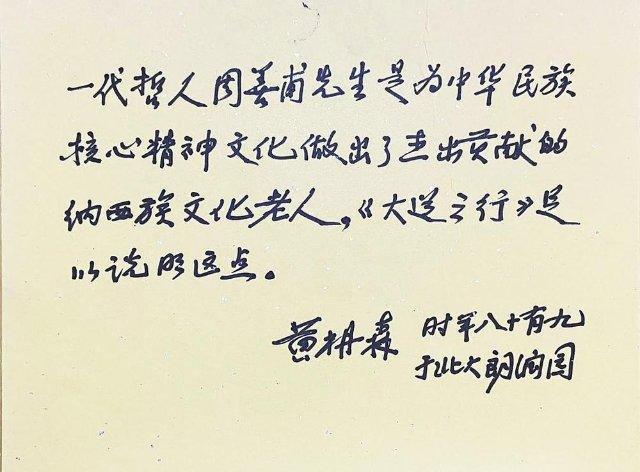 一代哲人周善甫先生是为中华民族
核心精神文化做出了杰出贡献的
纳西族文化老人，《大道之行》足
以说明这点。
黄枬森 时年八十有九
于北大朗润园